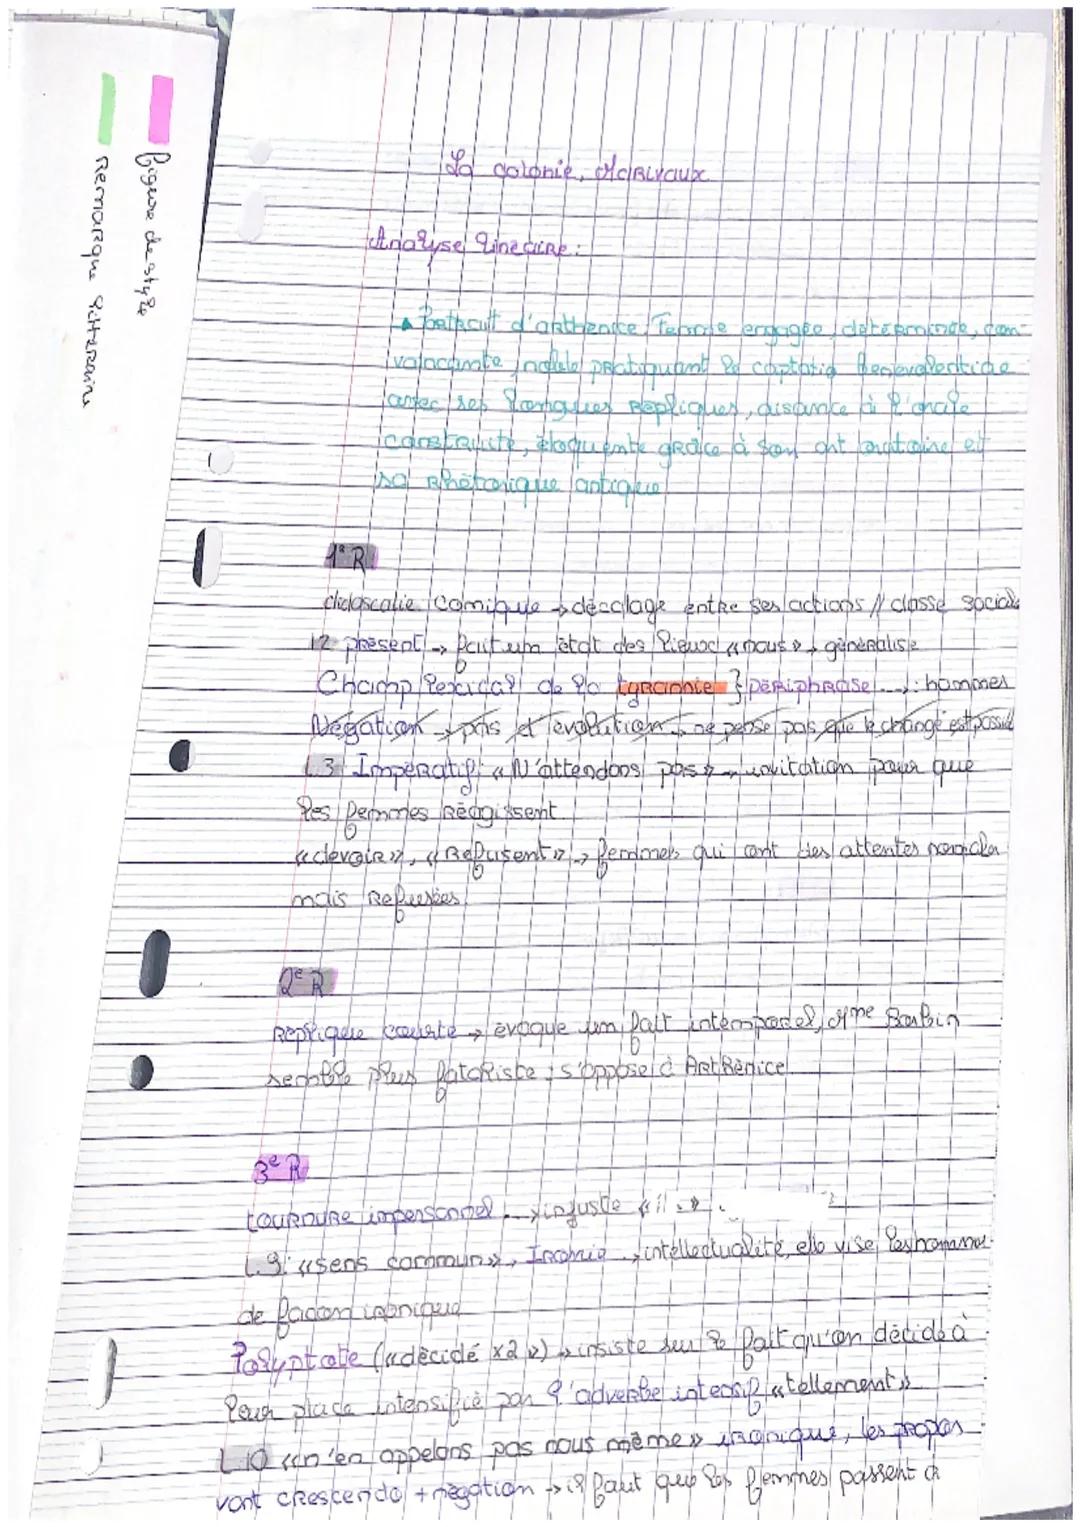 figure de style
Remarque littéraire
La colonie, Marivaux
Analyse linéaire :
Portrait d'arthenice, Femme engagée, déterminée, con-
vaincante, noble pratiquant le captatio Benevolentiae
avec ses longues Répliques, aisance à l'orale
construite, éloquente grâce à son art oratoire et
sa Rhétorique antique
1e R
didascalie comique → décalage entre ses actions // classe sociale
l2 présent → fait un état des lieux « nous » → généralise
Champ lexical de la tyrannie } périphrase → : hommes
Négation → pris et évolution → ne pense pas que le change est possible
L.3 Impératif « N'attendons pas » → invitation pour que
les femmes Réagissent
« devoir », « Refusent » → femmes qui ont des attentes normales
mais Refusées
2e R
Réplique courte → évoque un fait intemporel, Mme Sorbin
semble plus fataliste, s'oppose à Arthénice
3e R
tournure impersonnel → injuste « il »
L.9 « sens commun », Ironie → intellectualité, elle vise les hommes
de façon ironique
Polyptote (« décidé x2 ») → insiste sur le fait qu'on décide à
leur place intensifié par l'adverbe intensif « tellement »
L.10 « n'en appelons pas nous même » ironique, les propos
vont crescendo + négation → il faut que les femmes passent à